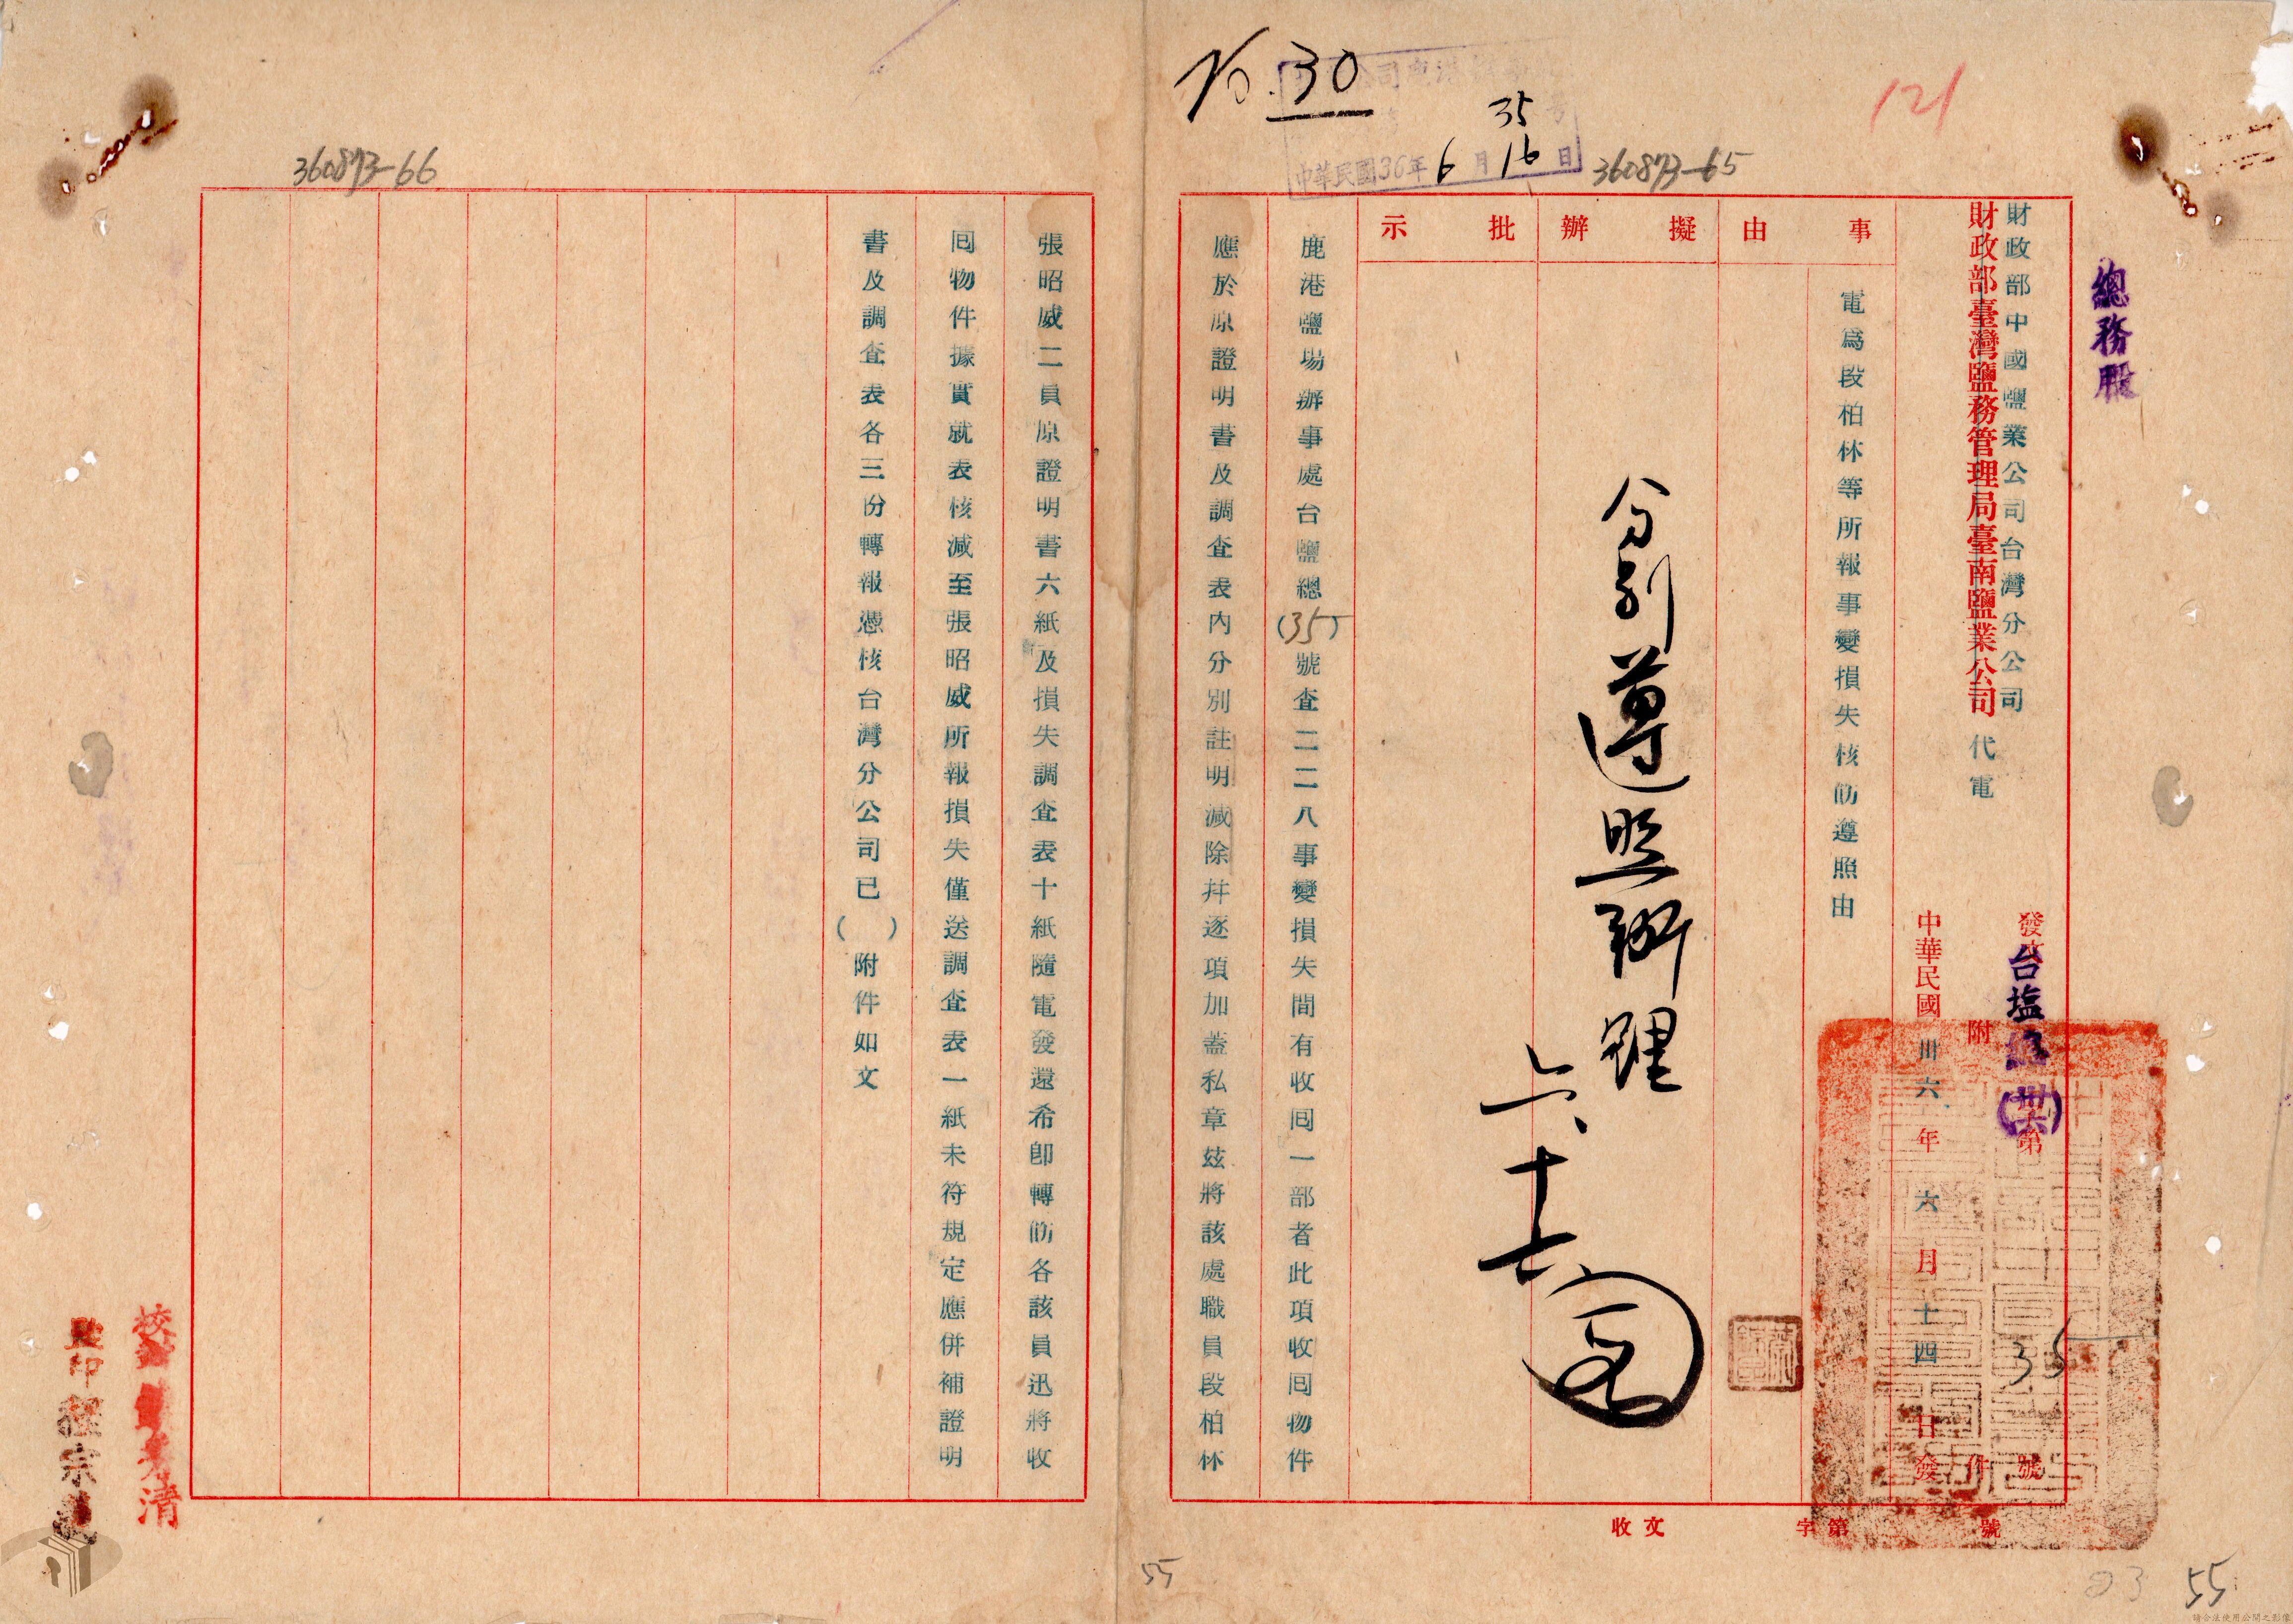 總務股
財政部中國鹽業公司台灣分公司
財政部臺灣鹽務管理局臺南鹽業公司 代電
發文台塩總(卅六)第35號
附 件
中華民國卅六年六月十四日發
事由
電為段柏林等所報事變損失核飭遵照由
擬辦
分別遵照辦理
六、十七
批示
鹿港鹽場辦事處台鹽總(35)號查二二八事變損失間有收回一部者此項收回物件
應於原證明書及調查表內分別註明減除幷逐項加蓋私章茲將該處職員段柏林
張昭威二員原證明書六紙及損失調查表十紙隨電發還希卽轉飭各該員迅將收
回物件據實就表核減至張昭威所報損失僅送調查表一紙未符規定應併補證明
書及調查表各三份轉報憑核台灣分公司已( )附件如文
收文 字第 號
No. 30
35
中華民國36年6月16日
121
360873-65
360873-66
監印 程宗
校 清
55
23
55
請合法使用公開之影像